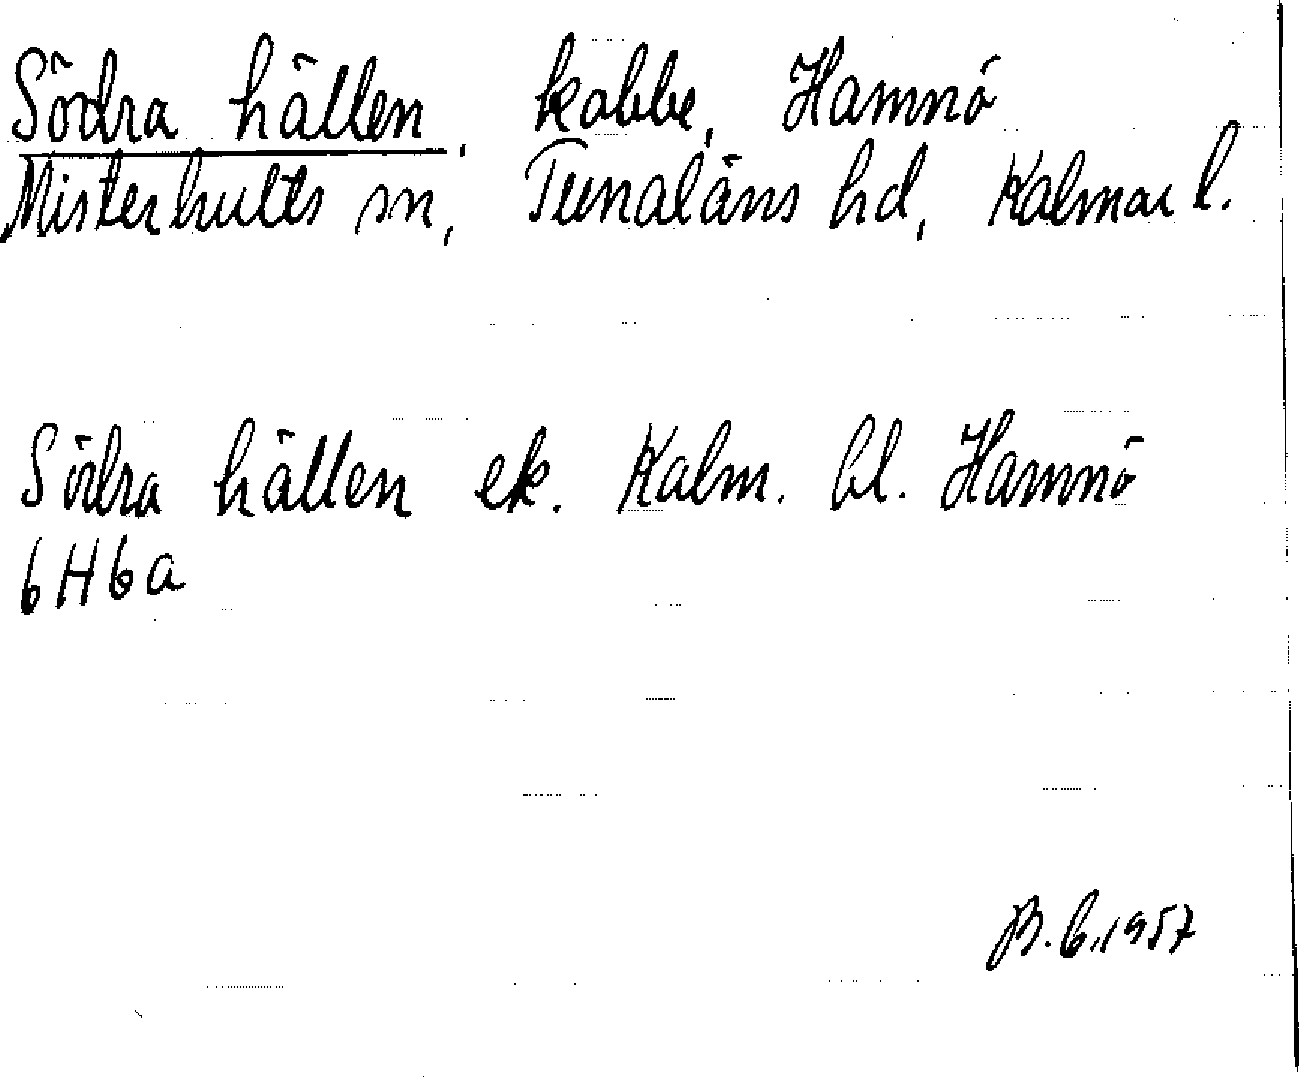 Södra hällen, kobbe, Hamnö
Misterhults sn, Tunaläns hd, Kalmar l.
Södra hällen ek. Kalm. bl. Hamnö
6H6a
B.G. 1957